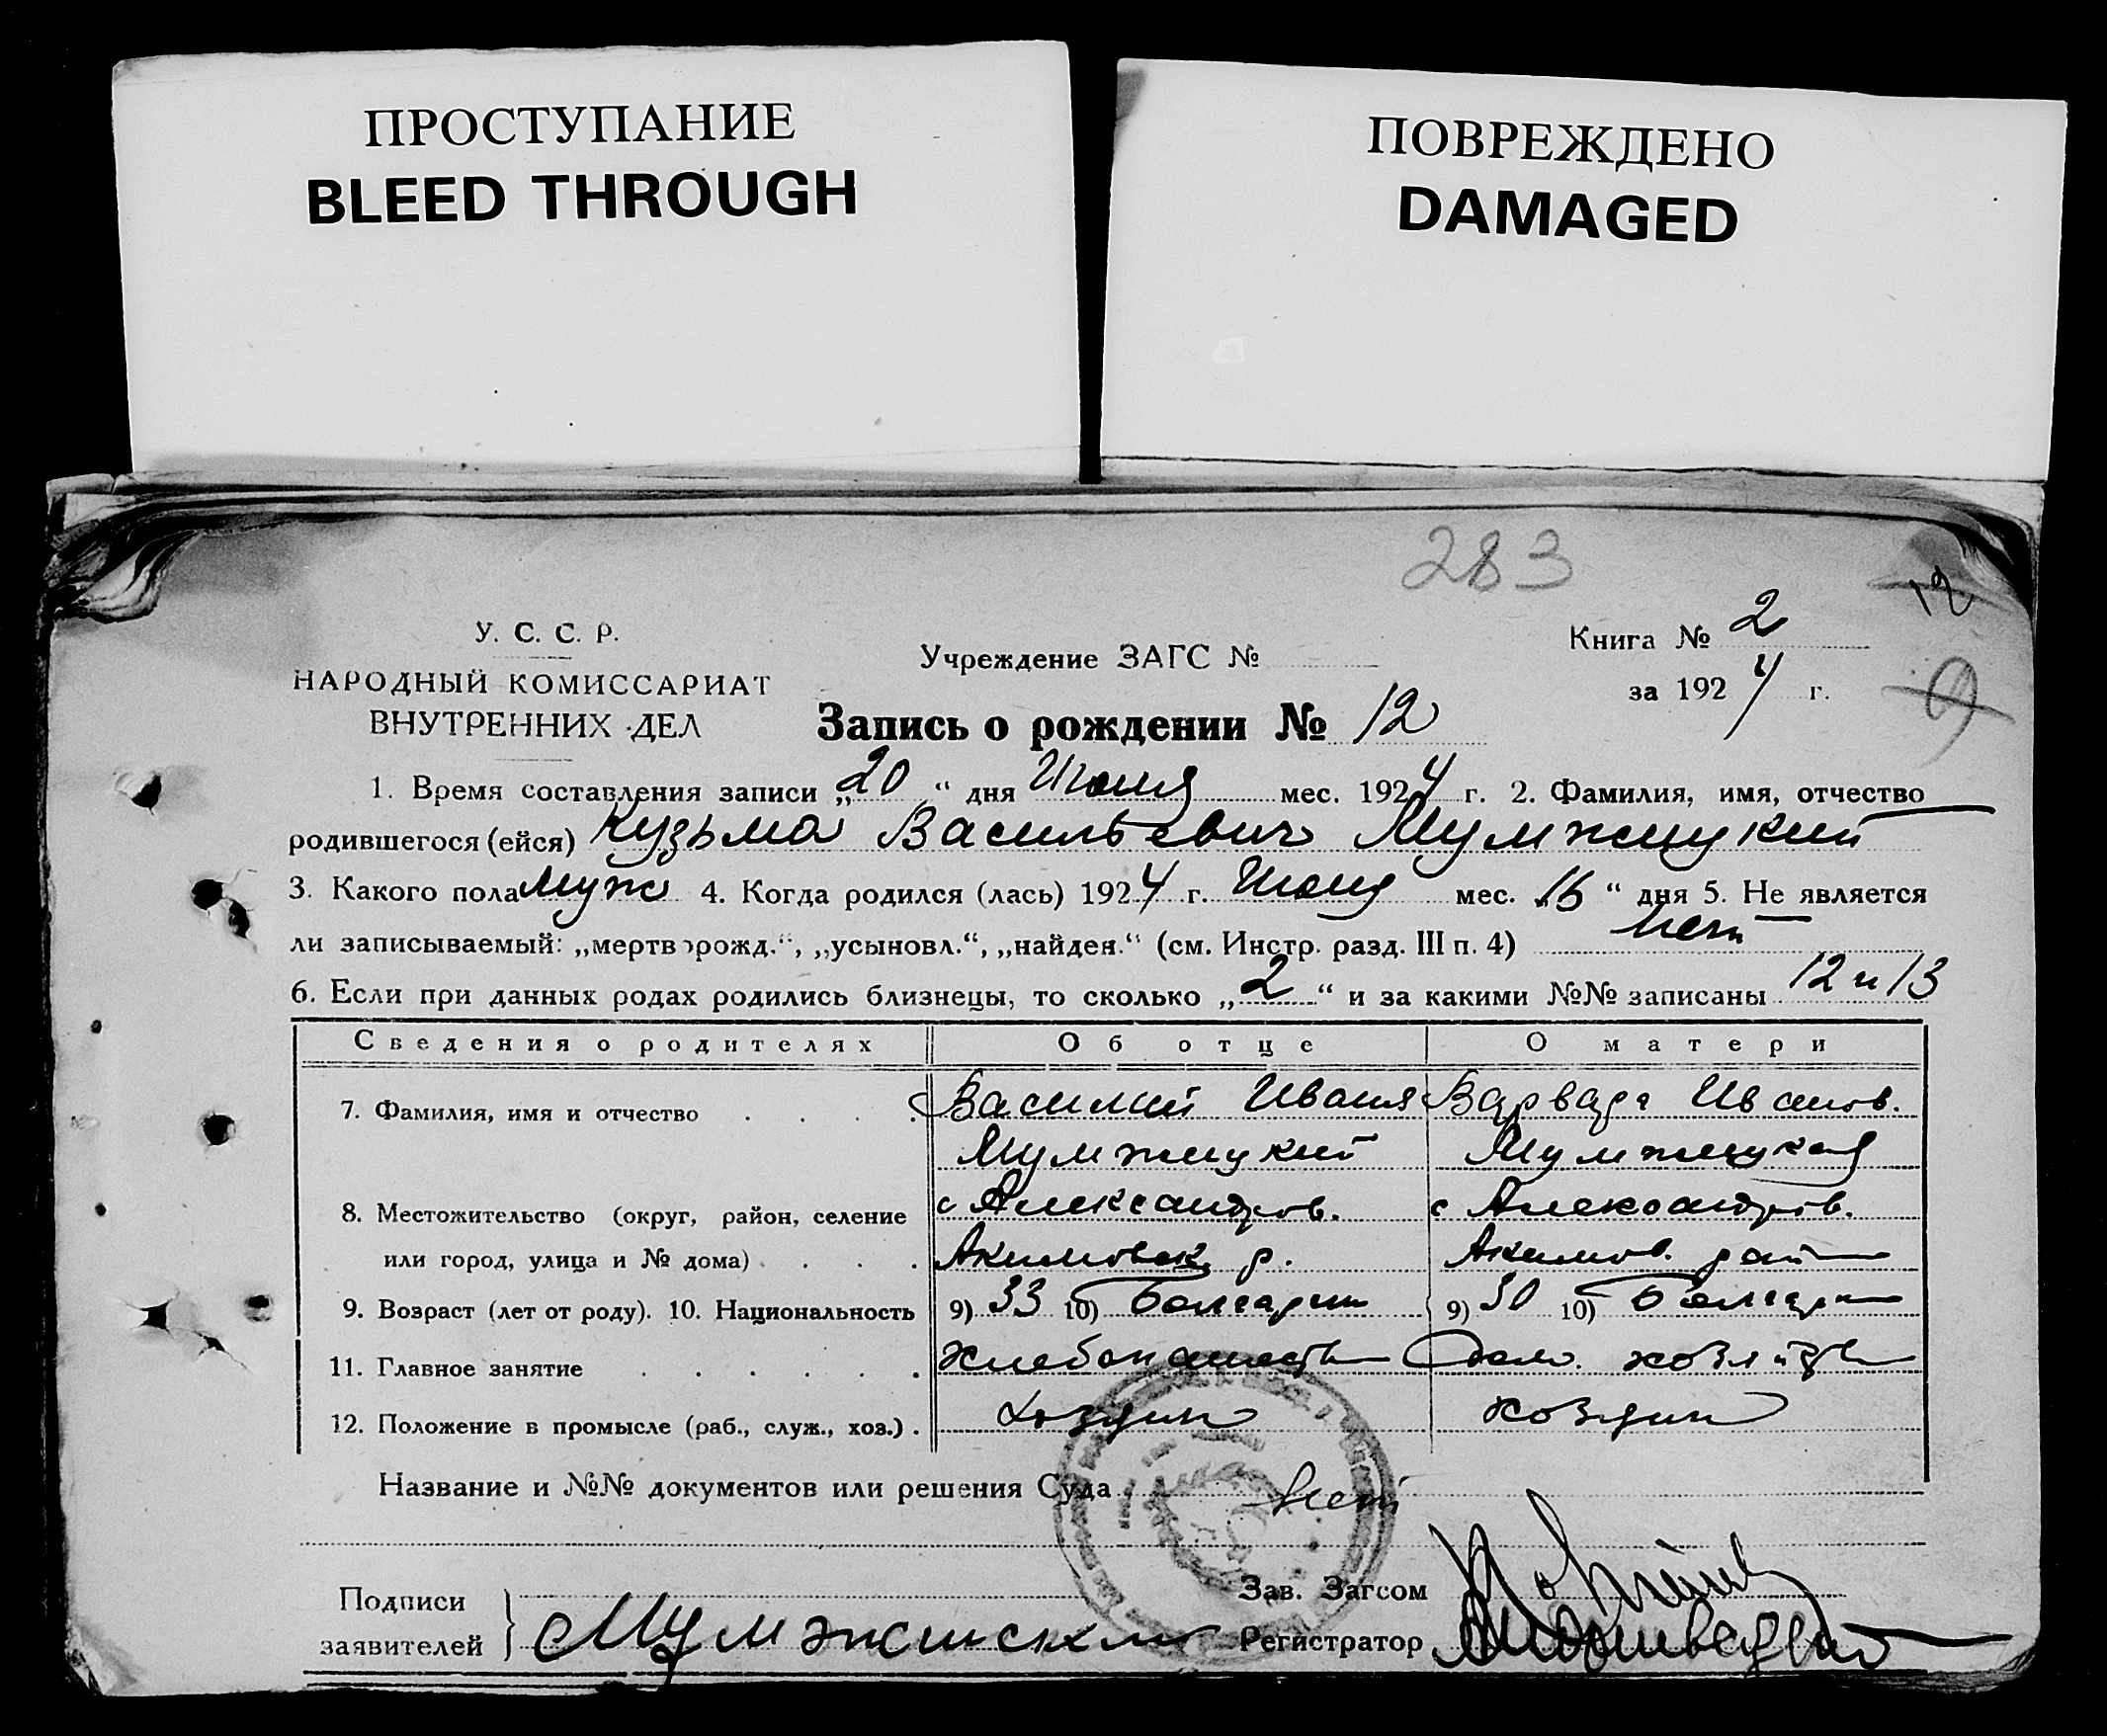 ПРОСТУПАНИЕ
BLEED THROUGH
ПОВРЕЖДЕНО
DAMAGED
283
12
У. С. С. Р.
НАРОДНЫЙ КОМИССАРИАТ
ВНУТРЕННИХ ДЕЛ
Учреждение ЗАГС №
Книга № 2
за 1924 г.
9
Запись о рождении № 12
1. Время составления записи „20“ дня Июля мес. 1924 г. 2. Фамилия, имя, отчество
родившегося (ейся) Кузьма Васильевич Мумжицкий
3. Какого пола муж 4. Когда родился (лась) 1924 г. мес. „16“ дня 5. Не является
ли записываемый: „мертворожд.“, „усыновл.“, „найден.“ (см. Инстр. разд. III п. 4) нет
6. Если при данных родах родились близнецы, то сколько „2“ и за какими №№ записаны 12 и 13
Сведения о родителях Об отце О матери
7. Фамилия, имя и отчество . . . . Василий Иванов Варвара Иванов.
Мумжицкий Мумжицкая
8. Местожительство (округ, район, селение с Александров. с Александров.
или город, улица и № дома) . . . . Акимовск. р. Акимов. рай
9. Возраст (лет от роду). 10. Национальность 9) 33 10) Болгарин 9) 30 10) Болгарк
11. Главное занятие . . . . . . Хлебопашеств дом. хозяйств
12. Положение в промысле (раб., служ., хоз.) . хозяин хозяин
Название и №№ документов или решения Суда нет
Подписи
заявителей
Зав. Загсом
Регистратор